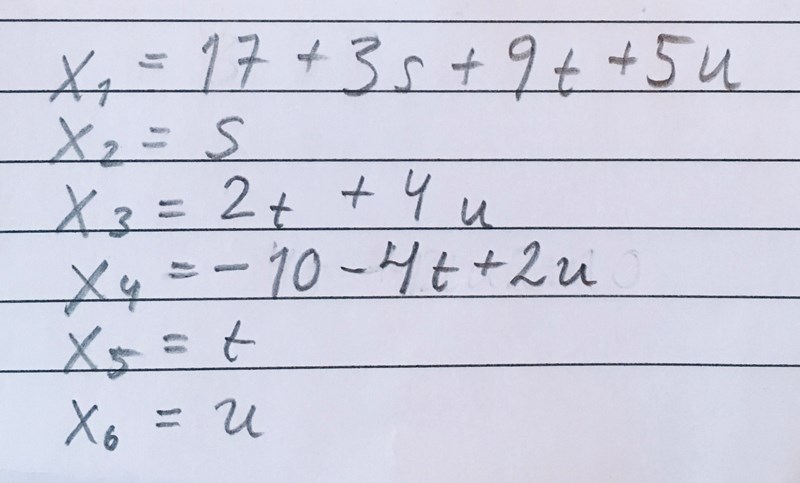 x₁ = 17 + 3s + 9t + 5u
x₂ = s
x₃ = 2t + 4u
x₄ = -10 - 4t + 2u
x₅ = t
x₆ = u